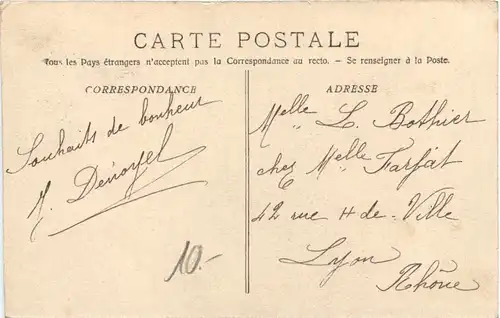 CARTE POSTALE
Tous les Pays étrangers n'acceptent pas la Correspondance au recto. - Se renseigner à la Poste.
CORRESPONDANCE
Souhaits de bonheur
M. Denoyel
10.-
ADRESSE
Melle L. Bothier
chez Melle Farfat
42 rue H de-Ville
Lyon
Rhône